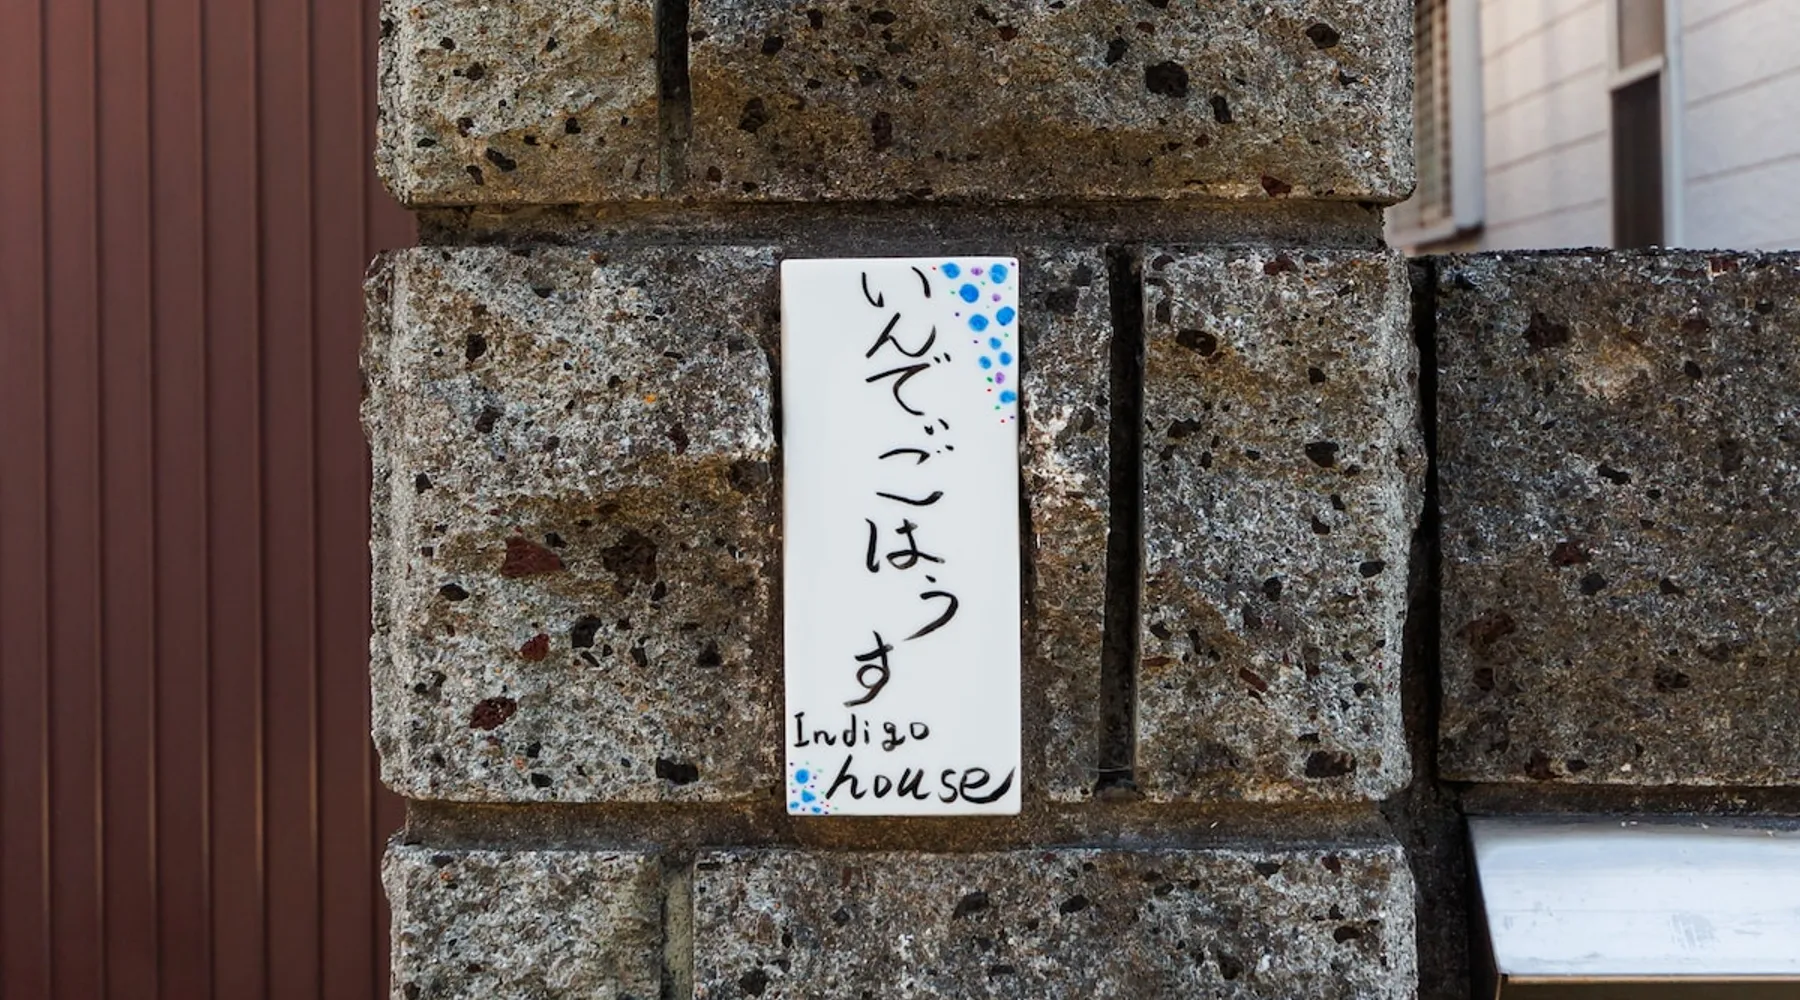 いんでごはうす
Indigo
house